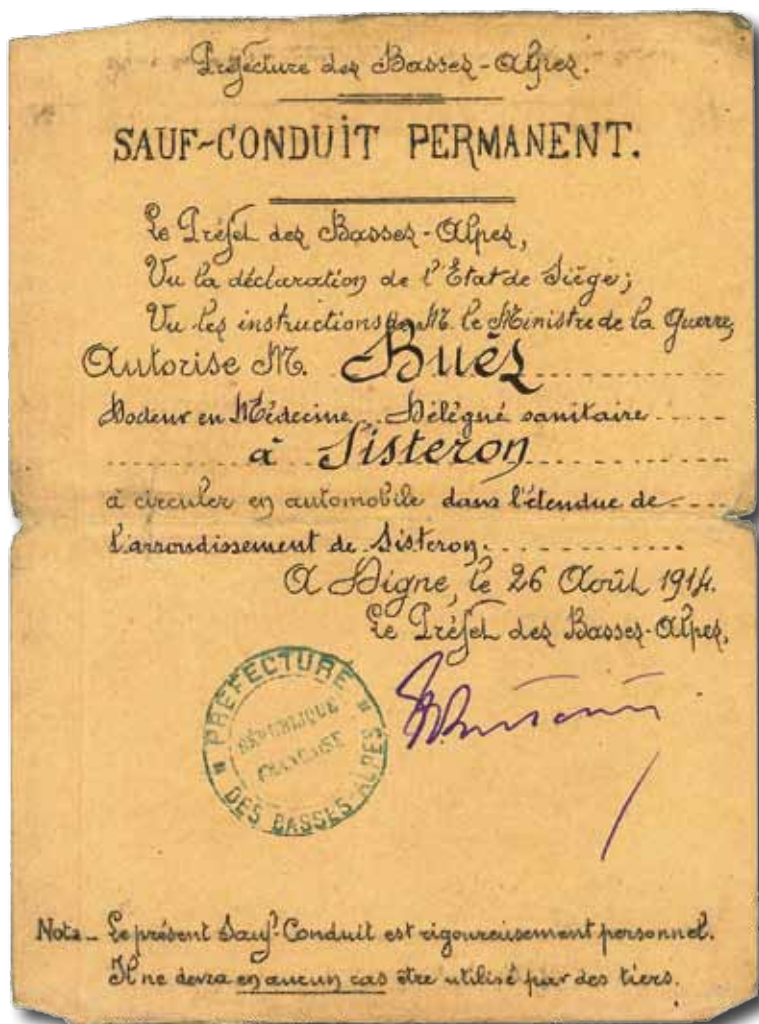 Préfecture des Basses-Alpes.
SAUF-CONDUIT PERMANENT.
Le Préfet des Basses-Alpes,
Vu la déclaration de l'État de Siège;
Vu les instructions de M. le Ministre de la Guerre,
Autorise M. Buès
Docteur en Médecine Délégué sanitaire
à Sisteron
à circuler en automobile dans l'étendue de
l'arrondissement de Sisteron.
A Digne, le 26 Août 1914.
Le Préfet des Basses-Alpes,
PRÉFECTURE
RÉPUBLIQUE
FRANÇAISE
DES BASSES ALPES
Nota - Le présent Sauf-Conduit est rigoureusement personnel.
Il ne devra en aucun cas être utilisé par des tiers.